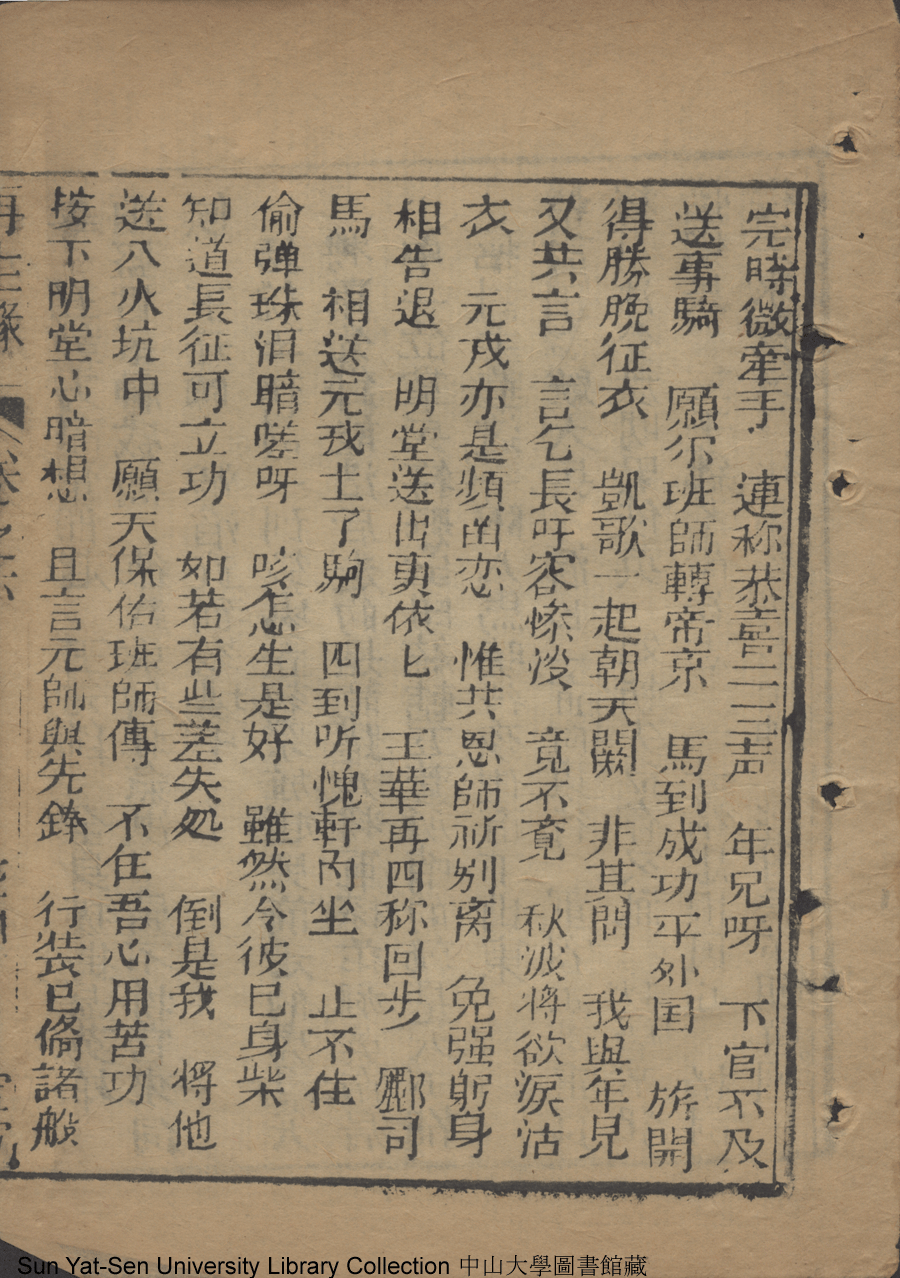 完時微牽手 連称恭喜二三声 年兄呀 下官不及
送事騎 願尔班師轉帝京 馬到成功平外国 旂開
得勝晚征衣 凱歌一起朝天闕 非其問 我與年見
又共言 言乞長吁容惨淡 竟不竟 秋波將欲淚沾
衣 元戎亦是頻畄恋 惟共恩師祈别离 免强躬身
相告退 明堂送出更依匕 王華再四称回步 酈司
馬 相送元戎士了駒 四到听愧軒内坐 止不住
偷弹珠泪暗嗟呀 咳怎生是好 雖然令彼已身柴
知道長征可立功 如若有些差失処 倒是我 將他
送八火坑中 願天保佑班師傳 不在吾心用苦功
按下明堂心暗想 且言元師與先鋒 行装已俻諸般
再生緣 卷之六
Sun Yat-Sen University Library Collection 中山大學圖書館藏